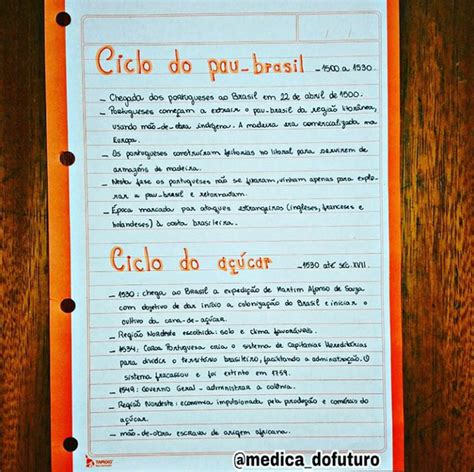 Ciclo do pau-brasil - 1500 a 1530.
- Chegada dos portugueses ao Brasil em 22 de abril de 1500.
- Portugueses começam a extrair o pau-brasil da região litorânea,
usando mão-de-obra indígena. A madeira era comercializada na
Europa.
- Os portugueses construíram feitorias no litoral para servirem de
armazéns de madeira.
- Nesta fase os portugueses não se fixaram, vinham apenas para explo-
rar o pau-brasil e retornavam.
- Época marcada por ataques estrangeiros (ingleses, franceses e
holandeses) à costa brasileira.
Ciclo do açúcar - 1530 até séc. XVII.
- 1530: chega ao Brasil a expedição de Martim Afonso de Souza
com objetivo de dar início a colonização do Brasil e iniciar o
cultivo da cana-de-açúcar.
- Região Nordeste escolhida: solo e clima favoráveis.
- 1534: Coroa Portuguesa cria o sistema de Capitanias Hereditárias
para dividir o território brasileiro, facilitando a administração. O
sistema fracassou e foi extinto em 1759.
- 1549: Governo Geral - administrar a colônia.
- Região Nordeste: economia impulsionada pela produção e comércio do
açúcar.
- mão-de-obra escrava de origem africana.
@medica_dofuturo